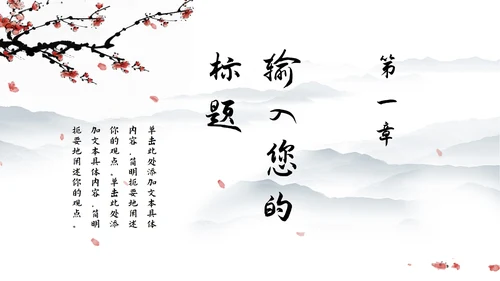 第一章
输入您的
标题
单击此处添加文本具体
内容，简明扼要地阐述
你的观点。单击此处添
加文本具体内容，简明
扼要地阐述你的观点。